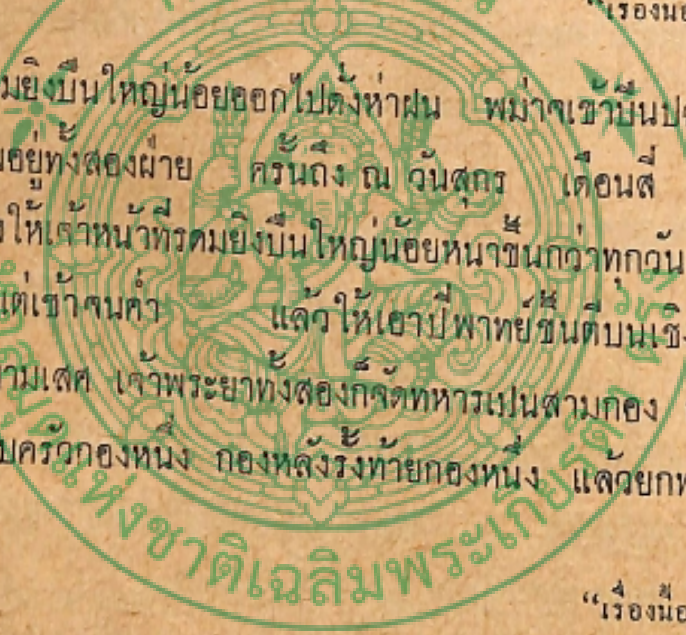 “เรื่องนี้อ
มยิงปืนใหญ่น้อยออกไปดั่งห่าฝน พม่าจะเข้าปืนป
อยู่ทั้งสองฝ่าย ครั้นถึง ณ วันสุกร เดือนสี่
ให้เจ้าหน้าที่รดมยิงปืนใหญ่น้อยหนาขึ้นกว่าทุกวัน
แต่เช้าจนค่ำ แล้วให้เอาปี่พาทย์ขึ้นตีบนเชิง
ามเสศ เจ้าพระยาทั้งสองก็จัดทหารเปนสามกอง
บครัวกองหนึ่ง กองหลังรั้งท้ายกองหนึ่ง แล้วยกท
“เรื่องนี้อ
แห่งชาติเฉลิมพระเกียรติ